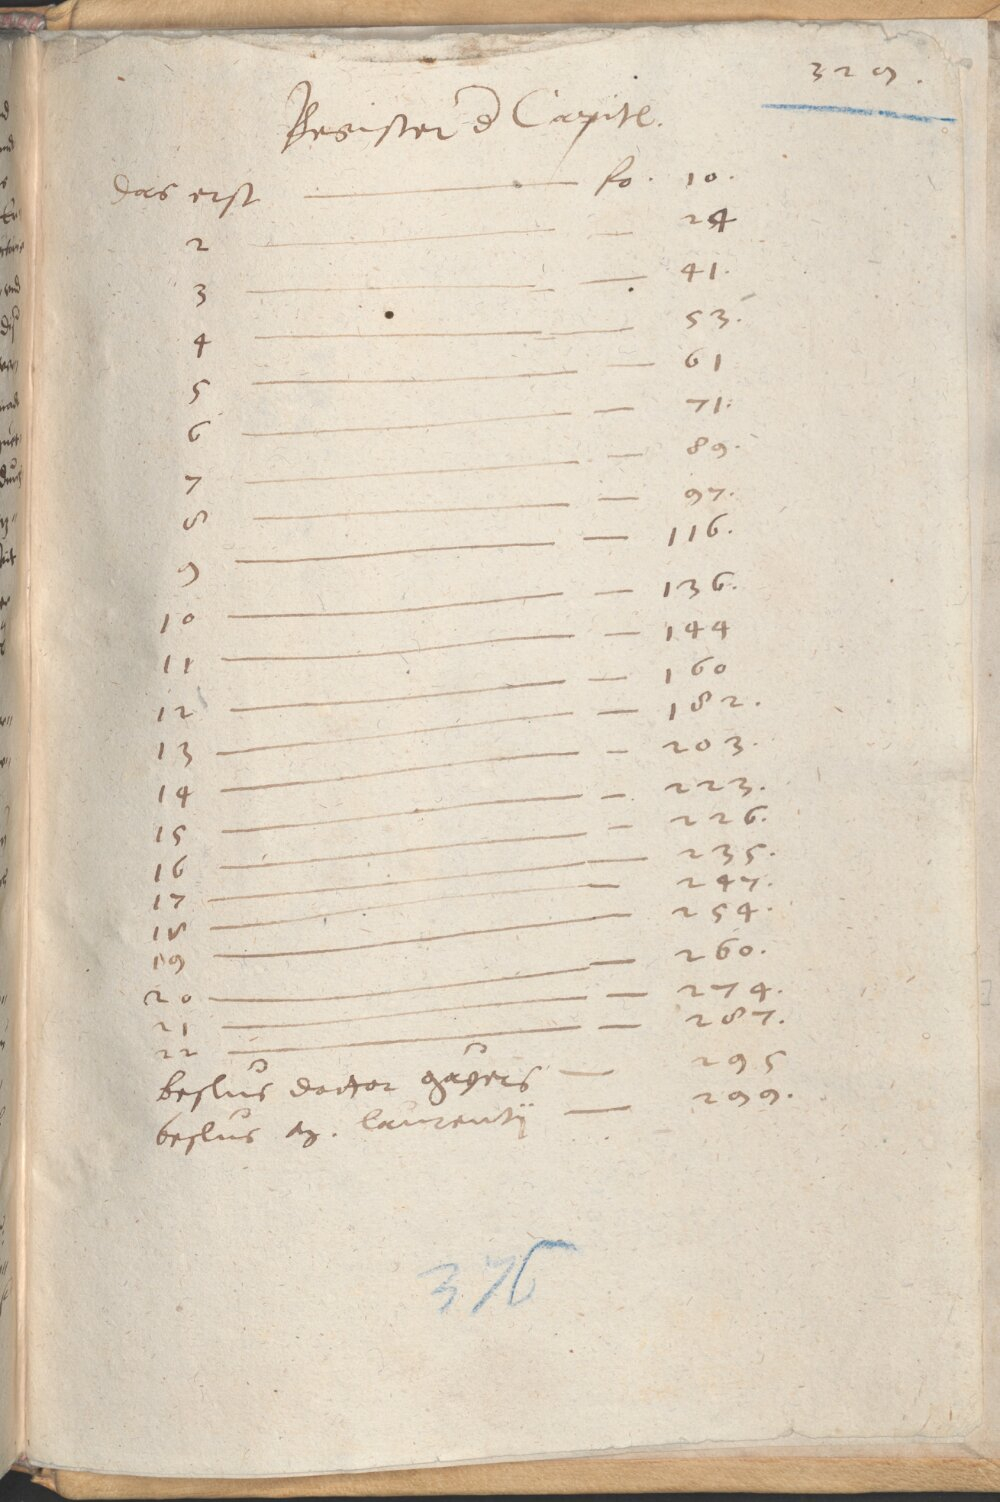 329.
Register d Capitl.
das erst — fo. 10.
2 — 24
3 — 41.
4 — 53.
5 — 61
6 — 71.
7 — 89.
8 — 97.
9 — 116.
10 — 136.
11 — 144
12 — 160
13 — 182.
14 — 203.
15 — 223.
16 — 226.
17 — 235.
18 — 247.
19 — 254.
20 — 260.
21 — 274.
22 — 287.
beslus doctor gaÿers — 295
beslus M. laurentij — 299.
376